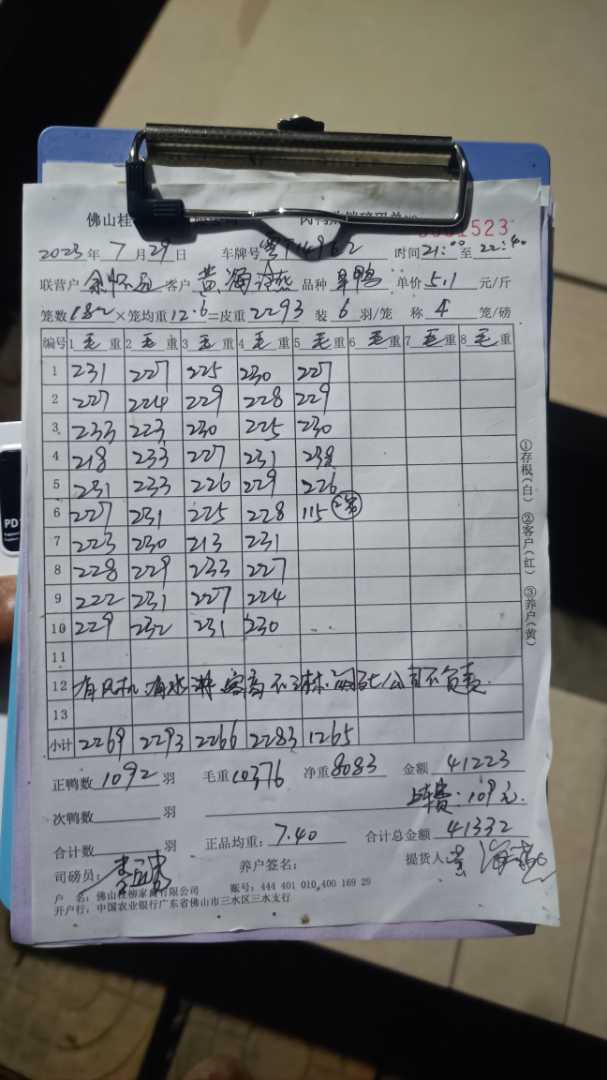 佛山桂
1523
2023年7月29日 车牌号粤T14962 时间21:00至22:40
联营户 余怀 客户 黄海燕 品种 旱鸭 单价5.1元/斤
笼数182×笼均重12.6=皮重2293 装6羽/笼 称4笼/磅
编号 1毛重 2毛重 3毛重 4毛重 5毛重 6毛重 7毛重 8毛重
1 231 227 225 230 227
2 227 224 229 228 229
3 233 223 230 225 230
4 218 233 227 231 238
5 231 233 226 229 226
6 227 231 225 228 115 2笼
7 223 230 213 231
8 228 229 233 227
9 222 231 227 224
10 229 232 231 230
11
12 有风机 有水淋 客商不淋 公司不负责
13
小计 2269 2293 2266 2283 1265
正鸭数1092羽 毛重10376 净重8083 金额41223
上车费:109元
次鸭数 羽
合计数 羽 正品均重:7.40 合计总金额41332
司磅员: 养户签名: 提货人:黄海燕
户 名:佛山桂柳家禽有限公司 账号:444 401 010 400 169 29
开户行:中国农业银行广东省佛山市三水区三水支行
①存根(白) ②客户(红) ③养户(黄)
PD